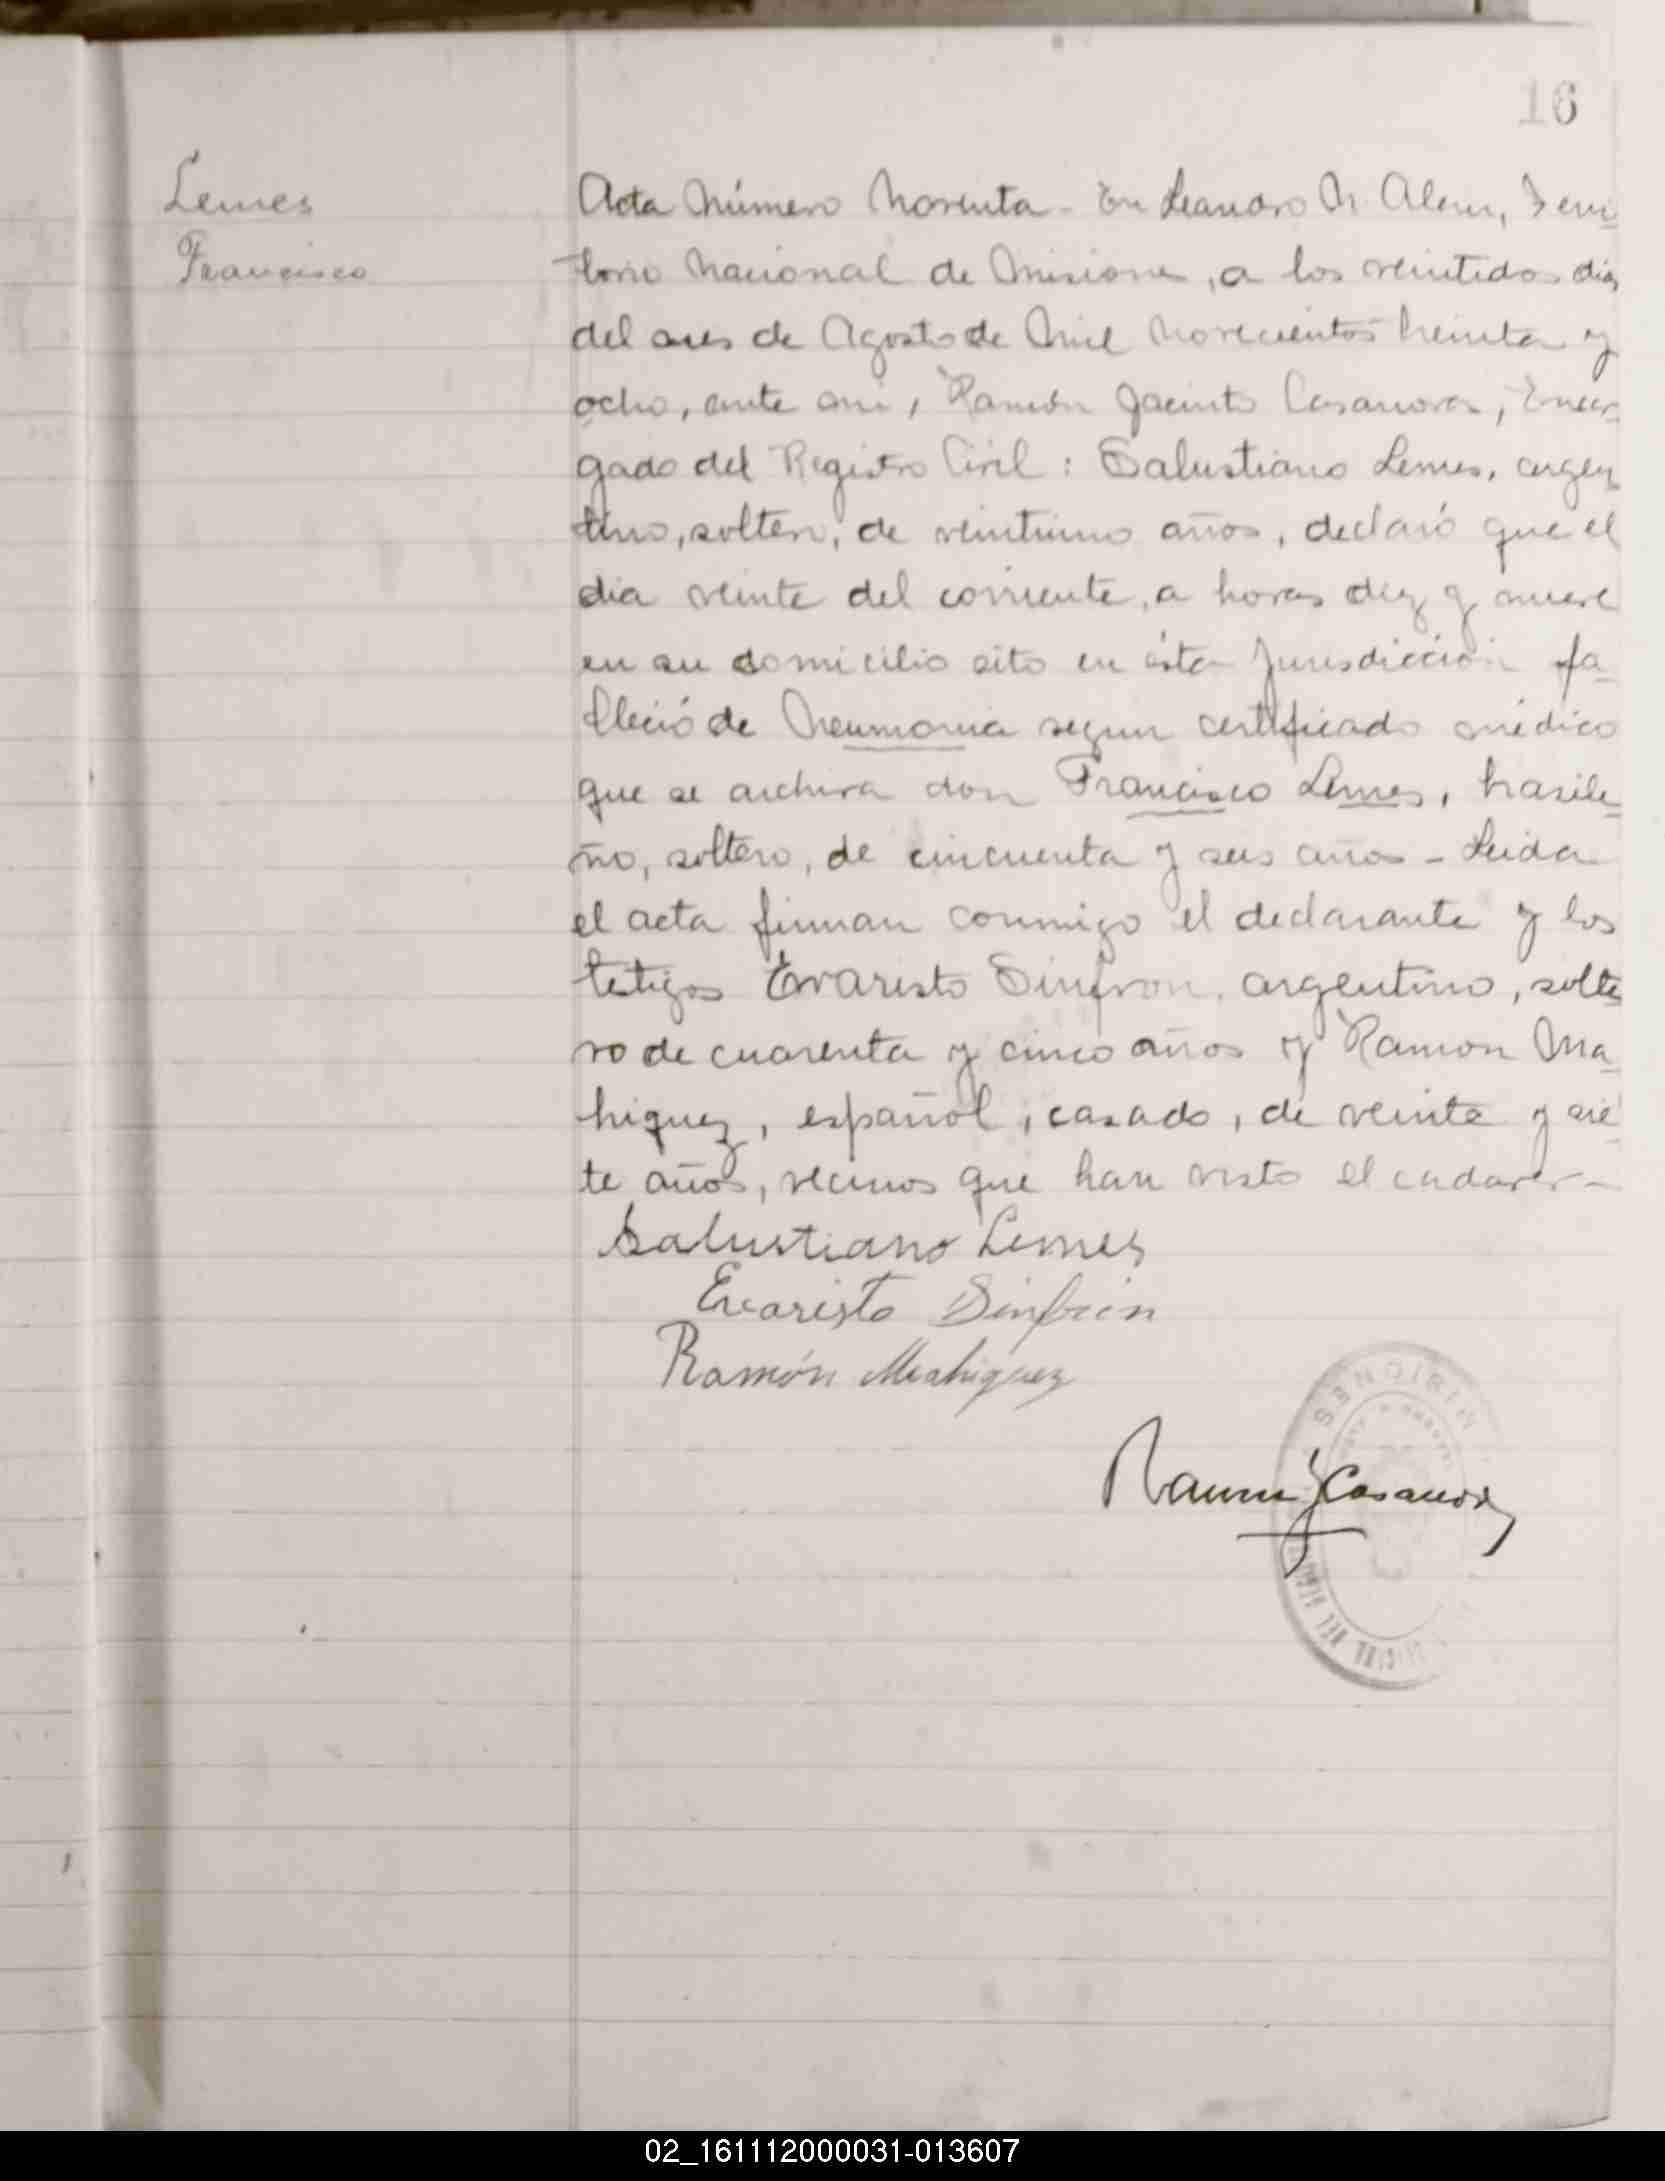 16
Lemes
Francisco
Acta Número Noventa - En Leandro N Alem, Terri
torio Nacional de Misiones, a los veintidos dias
del mes de Agosto de Mil Novecientos treinta y
ocho, ante mi, Ramón Jacinto Casanova, Encar
gado del Registro Civil: Salustiano Lemes, argen
tino, soltero, de veintiuno años, declaró que el
dia veinte del corriente, a horas diez y nueve
en su domicilio sito en ésta Jurisdicción fa
lleció de Neumonia segun certificado médico
que se archiva don Francisco Lemes, brasile
ño, soltero, de cincuenta y seis años - Leida
el acta firman conmigo el declarante y los
testigos Evaristo Sinfron, argentino, solte
ro de cuarenta y cinco años y Ramon Ma
hiquez, español, casado, de veinte y sie
te años, vecinos que han visto el cadaver -
Salustiano Lemes
Evaristo Sinfron
Ramón Mahiquez
MISIONES
Ramón J Casanova
02_161112000031-013607